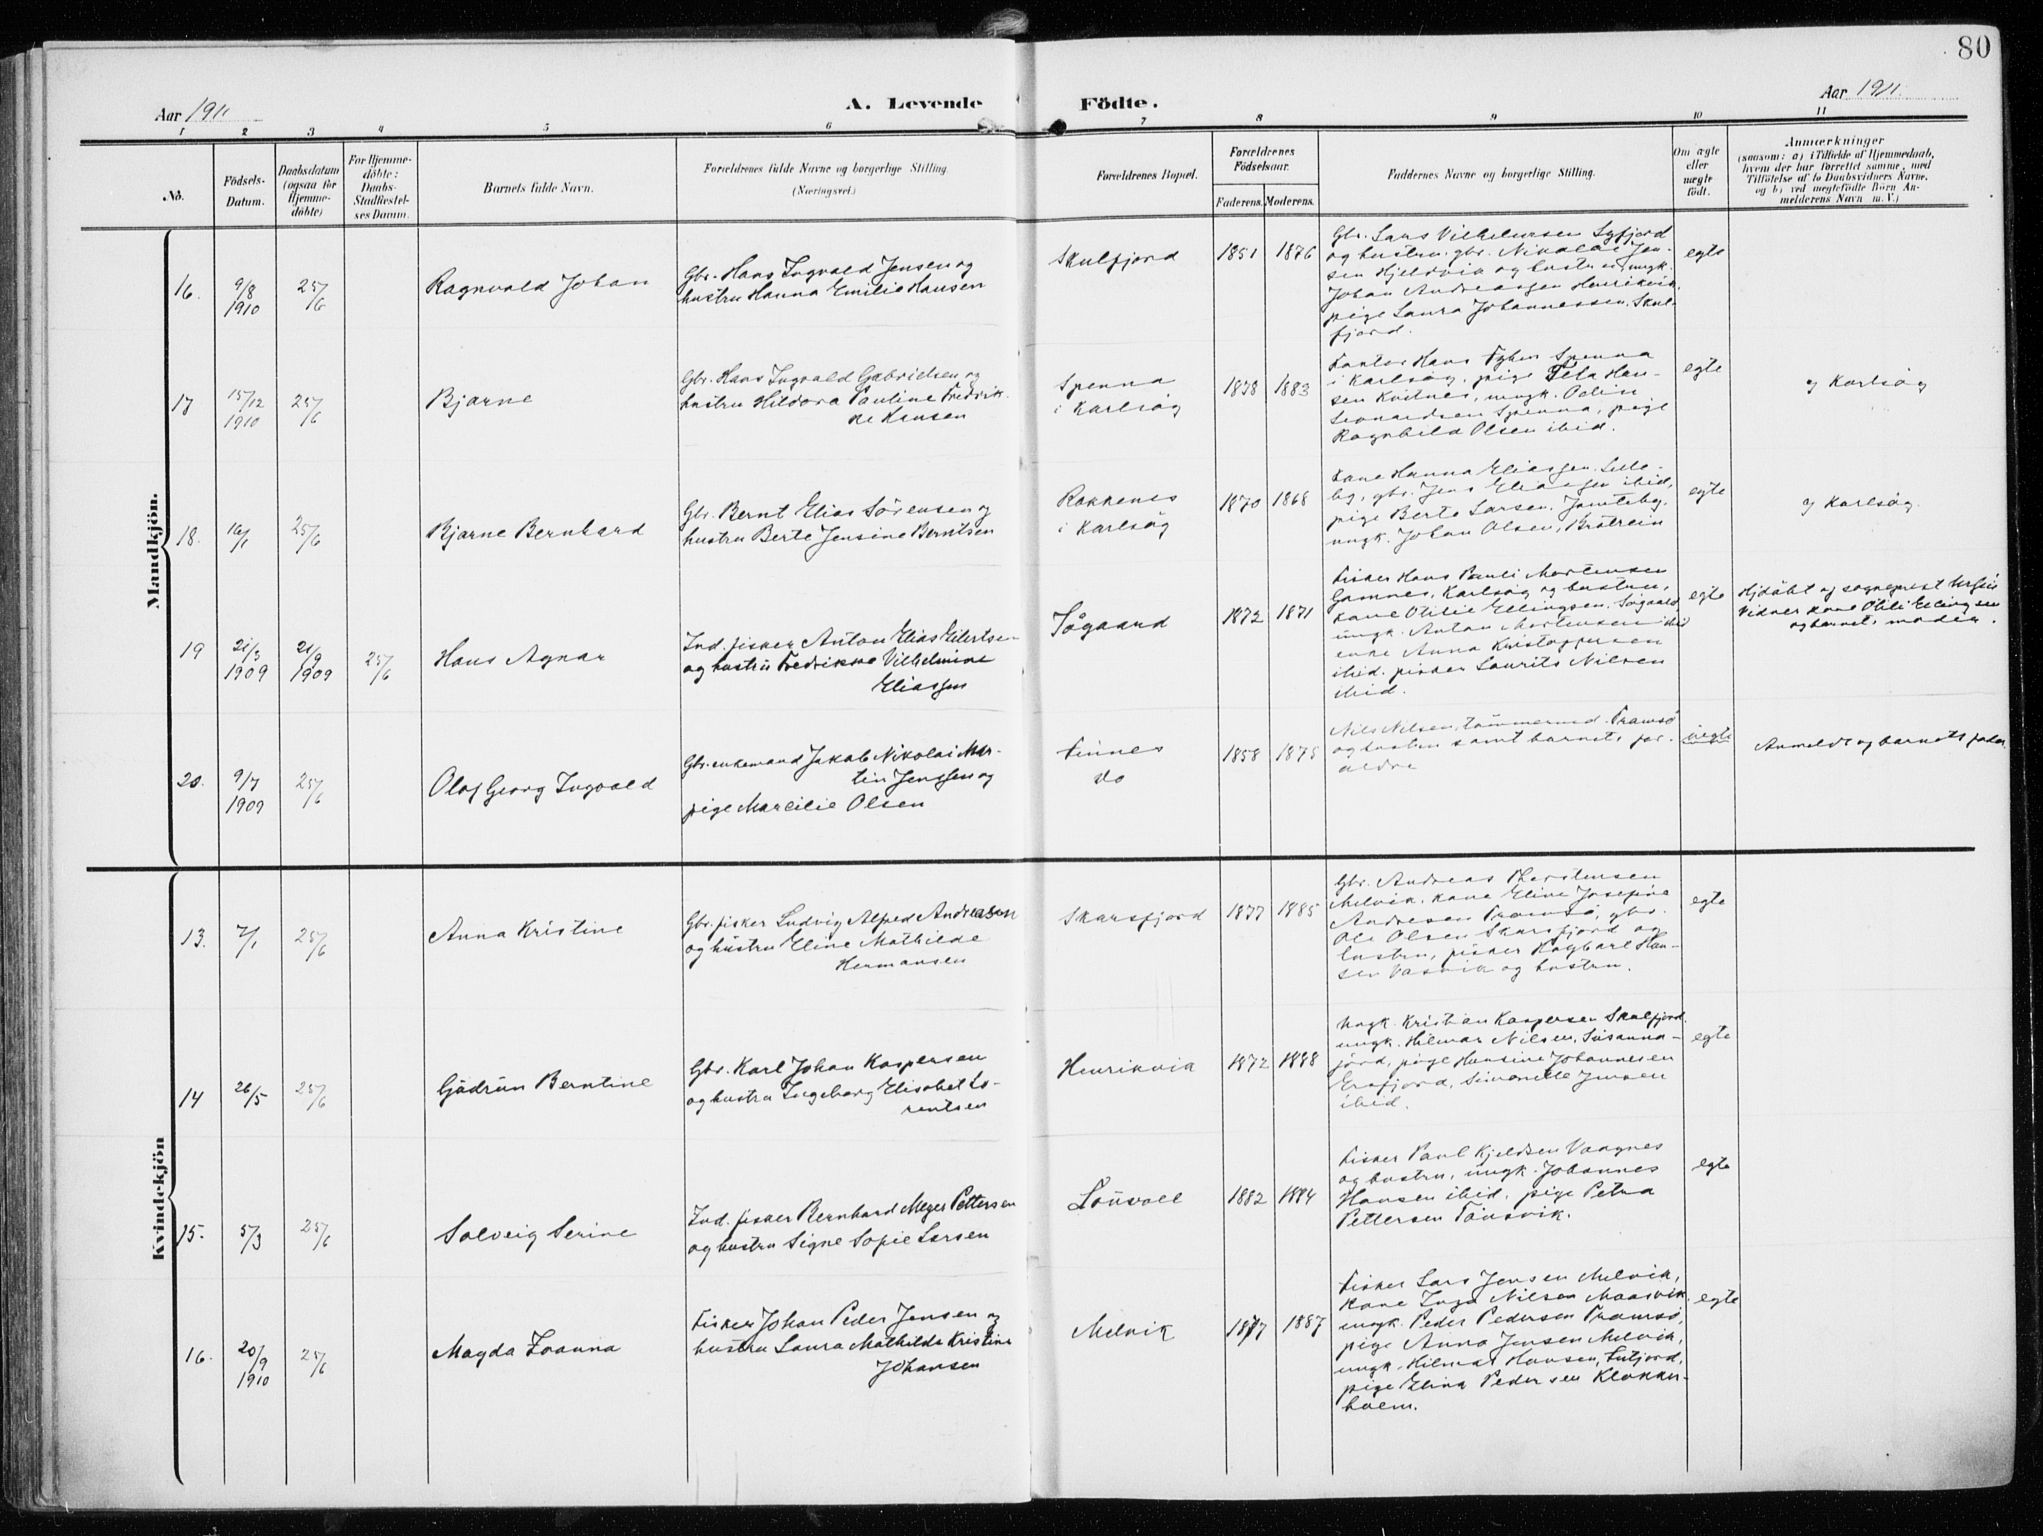 80
Aar 1911
A. Levende Födte.
Aar 1911.
1 2 3 4 5 6 7 8 9 10 11
No.
Födsels-
Datum.
Daabsdatum
(ogsaa for
Hjemme-
döbte)
For Hjemme-
döbte:
Daabs-
Stadfæstel-
ses Datum.
Barnets fulde Navn.
Forældrenes fulde Navne og borgerlige Stilling.
(Næringsvei.)
Forældrenes Bopæl.
Forældrenes
Födselsaar.
Faderens. Moderens.
Faddernes Navne og borgerlige Stilling.
Om ægte
eller
uægte
födt.
Anmærkninger
(saasom: a) i Tilfælde af Hjemmedaab,
hvem der har forrettet samme, med
Tilföielse af to Daabsvidners Navne,
og b) ved uægtefödte Börn An-
melderens Navn m. V.)
Mandkjön.
16.
9/8
1910
25/6
Ragnvald Johan
Gbr. Hans Ingvald Jensen og
hustru Hanna Emilie Hansen
Skulfjord
1851 1876
Gbr. Lars Vilhelmsen Sgfjord
og hustru, gbr. Nikolai Jen-
sen Hjeldvik og hustru, ungk.
Johan Andreassen Henrikvik,
pige Laura Johannessen, Skul-
fjord.
egte
17
15/12
1910
25/6
Bjarne
Gbr. Hans Ingvald Gabrielsen og
hustru Hildora Pauline Fredrik-
ke Hansen
Spenna
i Karlsøy
1878 1883
Kantor Hans Spenna
i Karlsøy, pige Han-
sen Kvitnes, ungk. Odin
Leonardsen Spenna, pige
Ragnhild Olsen ibid.
egte
og Karlsøy
18.
16/1
25/6
Bjarne Bernhard
Gbr. Bernt Elias Sørensen og
hustru Berte Jensine Berntsen
Rakkenes
i Karlsøy
1870 1868
Kone Hanna Eliassen Lille-
by, gbr. Jens Eliassen ibid,
pige Berte Larsen, Jamteby,
ungk. Johan Olsen, Bröirein
egte
og Karlsøy.
19
21/3
1909
21/9
1909
25/6
Hans Agnar
Ind. fisker Anton Elias Eilertsen
og hustru Fredrikke Vilhelmine
Eliassen
Søgaard
1872 1871
Fisker Hans Pauli Mortensen
Gamnes, Karlsøy og hustru,
kone Otilie Ellingsen, Søgaard,
ungk. Anton Mortensen ibid
enke Anna Kristoffersen
ibid. fisker Laurits Nilsen
ibid.
egte
Hjdøbt af sogneprest
Vidner kone Otili Ellingsen
og barnets moder.
20.
9/7
1909
25/6
Olaf Georg Ingvald
Gbr. enkemand Jakob Nikolai Mar-
tin Jenssen og
pige Marcilie Olsen
Finnes
do
1858 1875
Nils Nilsen, tømmermd. Tromsø
og hustru samt barnets for-
ældre
uegte
Anmeldt af barnets fader
Kvindekjön
13.
7/1
25/6
Anna Kristine
Gbr. fisker Ludvig Alfred Andreassen
og hustru Eline Mathilde
Hermansen
Skarsfjord
1877 1885
Gbr. Andreas Thorstensen
Melvik, kone Eline Josefine
Andresen Tromsø, gbr.
Ole Olsen Skarsfjord og
hustru, fisker Hagbart Han-
sen Vasvik og hustru.
egte
14
26/5
25/6
Gudrun Berntine
Gbr. Karl Johan Kaspersen
og hustru Ingeborg Elisabet Lo-
rentsen
Henrikvik
1872 1888
Ungk. Kristian Kaspersen Skulfjord.
ungk. Hilmar Nilsen, Susanna-
jord, pige Hansine Johannesen
Grøfjord, Simonette Jensen
ibid.
egte
15.
5/3
25/6
Solveig Serine
Ind. fisker Bernhard Meyer Pettersen
og hustru Signe Sofie Larsen
Lanvoll
1882 1884
Fisker Paul Kjeldsen Vaagnes
og hustru, ungk. Johannes
Hansen ibid, pige Petra
Pettersen Tønsvik.
egte
16.
20/9
1910
25/6
Magda Joanna
Fisker Johan Peder Jensen og
hustru Laura Mathilde Kristine
Johansen
Melvik
1877 1887
Fisker Lars Jensen Melvik,
kone Inga Nilsen Maasvik,
ungk. Peder Pedersen Tromsø,
pige Anna Jensen Melvik,
ungk. Hilmar Hansen,
pige Elina Pedersen Klokkar-
hvem.
egte